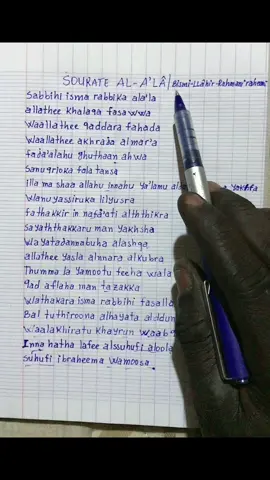 SOURATE AL-A'LÂ/Bismi-LLâhir-Rahmani rahemi
Sabbihi isma rabbika ala'la
allathee khalaqa fasawwa
Waallathee qaddara fahada
Waallathee akhraja almar'a
faja'alahu ghuthaan ahwa
Sanuqrioka fala tansa
illa ma shaa allahu innahu ya'lamu yakhfa
Wanuyassiruka lilyusra
fathakkir in nafa'ati alththikra
Sayaththakkaru man yakhsha
Wayatadannabuha alashqa
allathee yasla alnnara alkubra
Thumma la yamootu feeha wala
qad aflaha man tazakka
Wathakara isma rabbihi fasalla
Bal tuthiroona alhayata
Waalakhiratu khayrun
Inna hatha lafee alssuhufi aloola
suhufi ibraheema wamoosa.